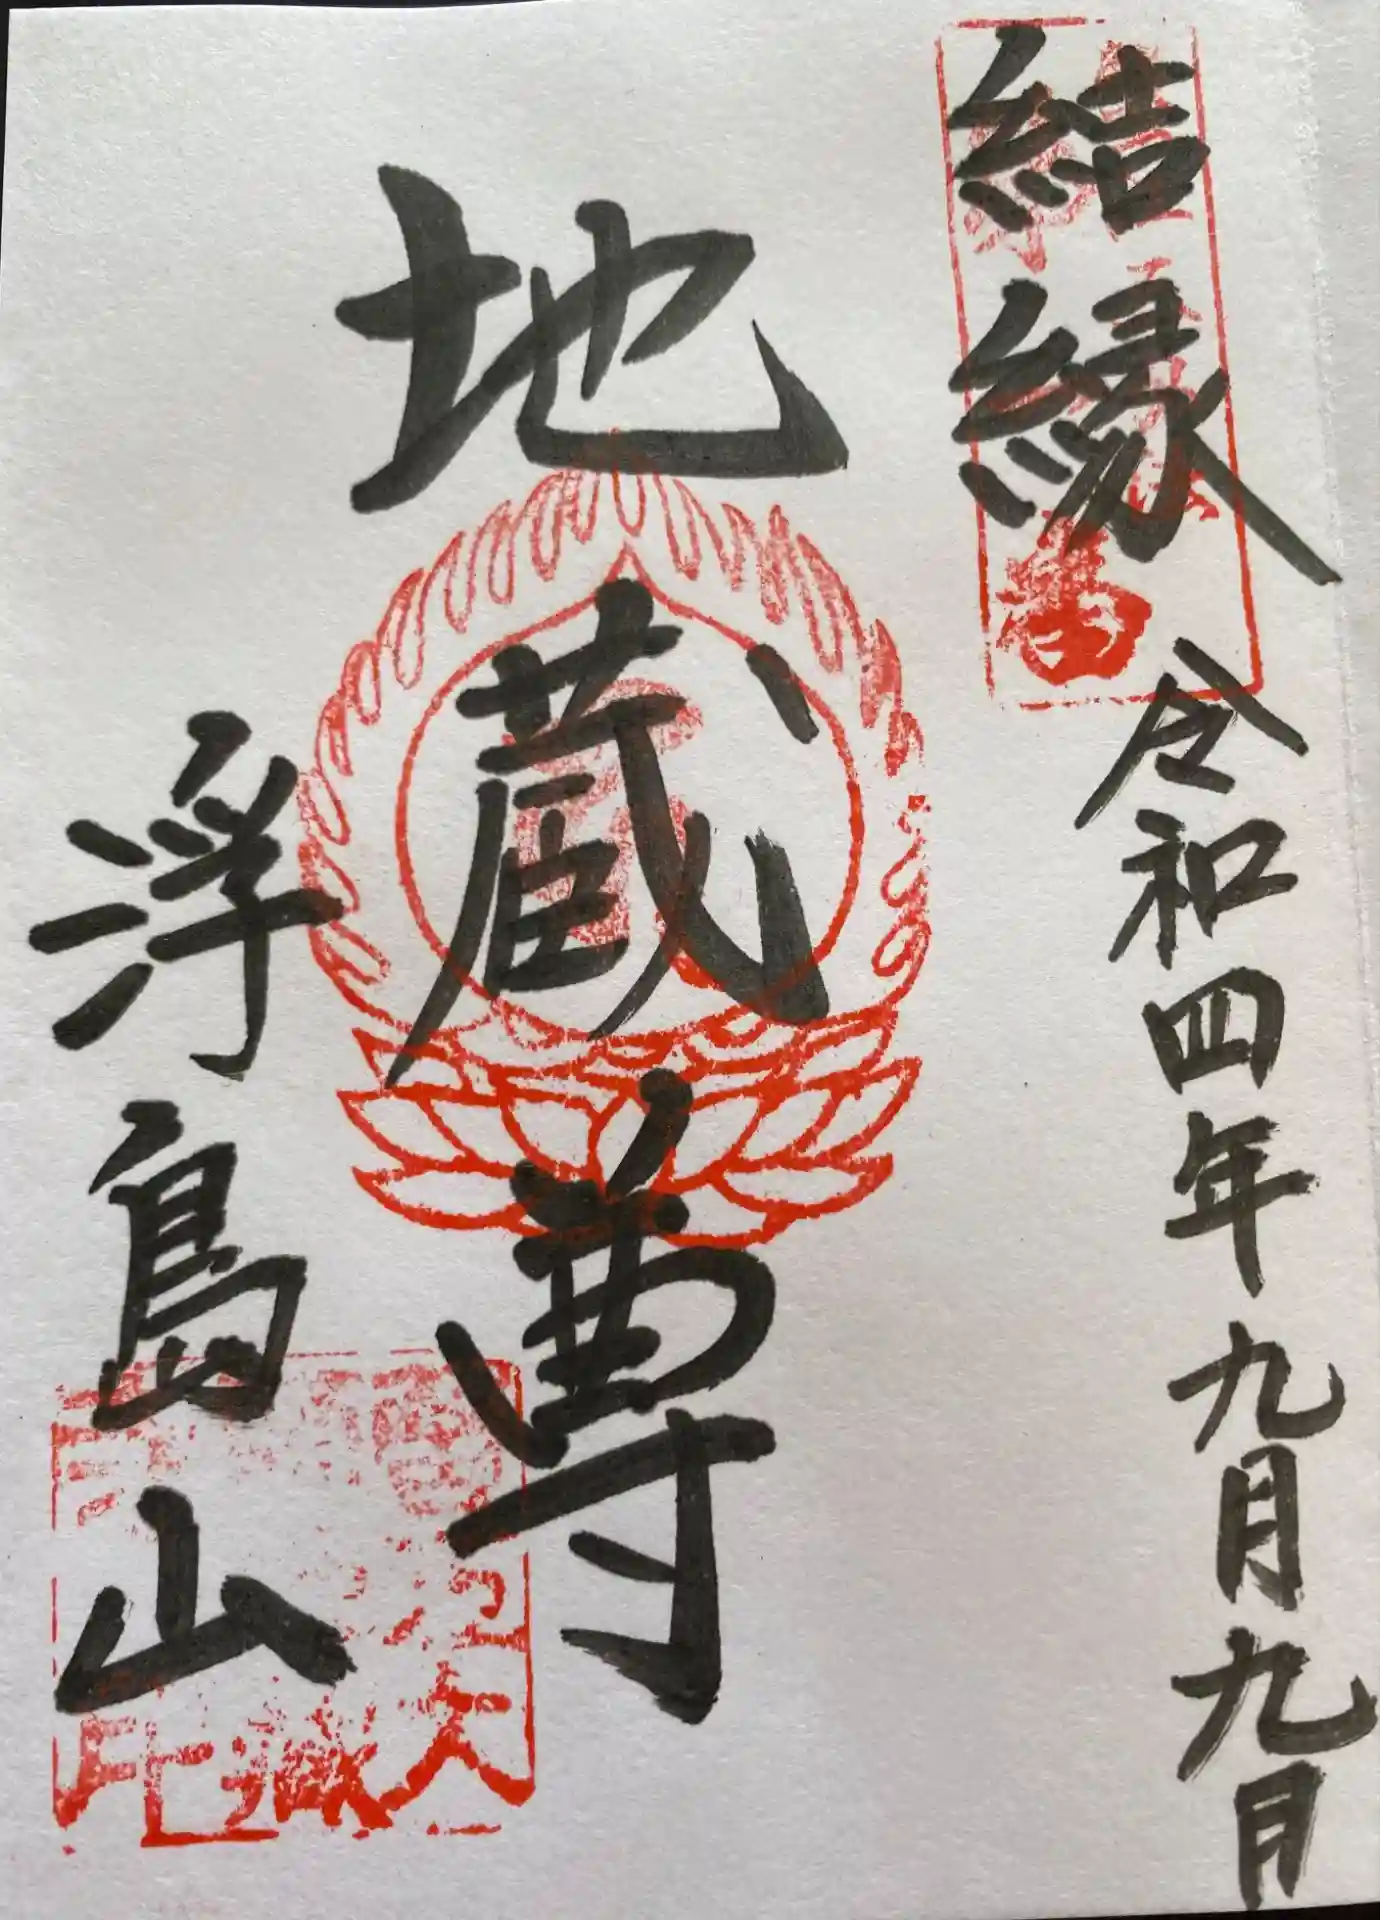 結縁
令和四年九月九日
地蔵尊
浮島山